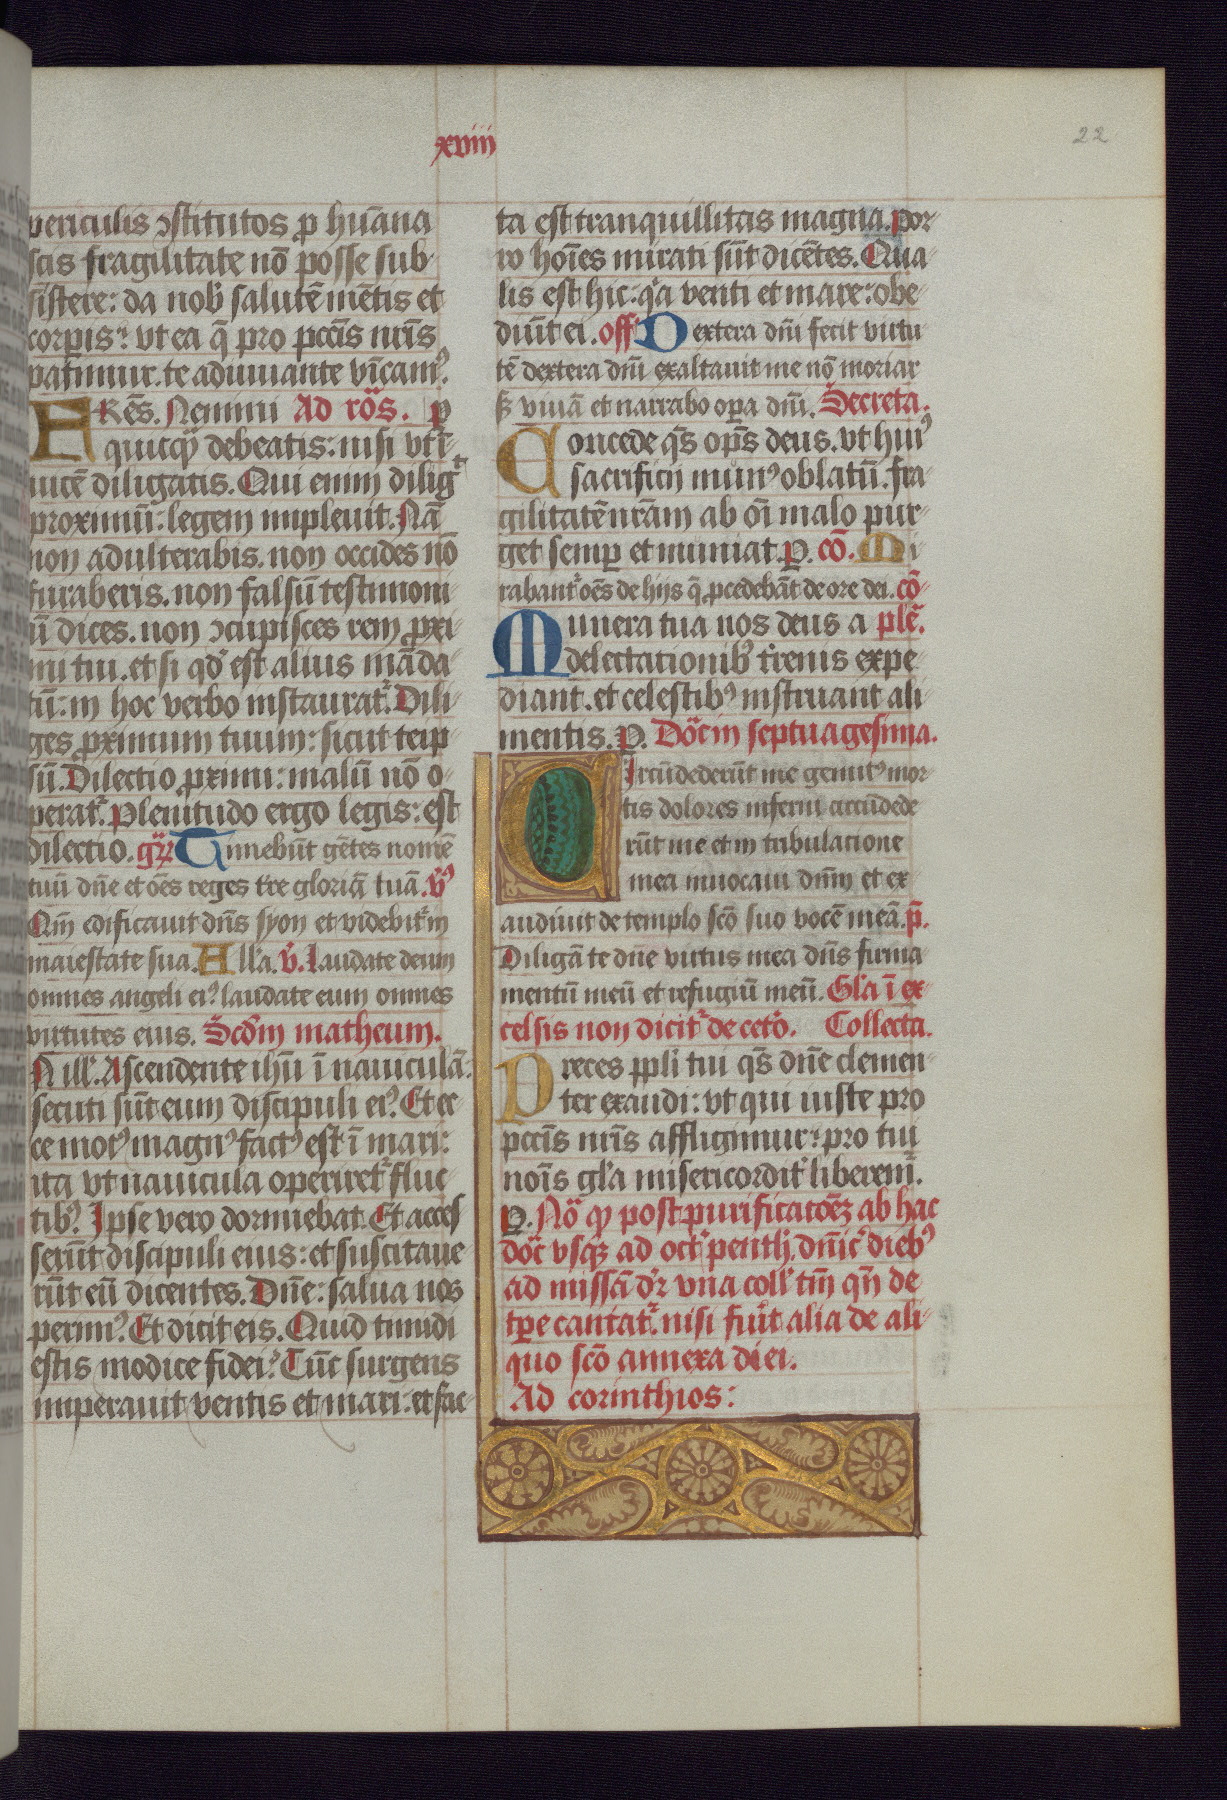 xviij
22
periculis ↄstitutos p̱ hūana
scis fragilitate nō posse sub-
sistere: da nob̓ salutē mētis et
corpis: vt ea q̄ pro pcc̄is nr̄is
patimur. te adiuuante vīcamꝰ.
FRēs. Nemini Ad rōs. p̱
quicq̄ debeatis: nisi vt ī-
uicē diligatis. Qui enim diligͭ
proximū: legem impleuit. Nā
non adulterabis. non occides nō
furaberis. non falsū testimoni-
ū dices. non ↄcupisces rem p̱xi-
mi tui. et si qd̓ est aliud māda-
tū: in hoc verbo instauratͬ. Dili-
ges p̱ximum tuum: sicut teip-
sū. Dilectio p̱ximi: malū nō o-
peratͬ. Plenitudo ergo legis: est
dilectio. gͬr̄ Timebūt gētes nomē
tuū dn̄e et oēs reges tr̄e gloriā tuā. v̓
Qm̄ edificauit dn̄s syon et videbitͬ in
maiestate sua. All̓a. v̓. Laudate deum
omnes angeli eiꝰ laudate eum omnes
virtutes eius. Scd̄m matheum.
In ill̓. Ascendente ihū ī nauiculā:
secuti sūt eum discipuli eiꝰ. Et ec-
ce motꝰ magnꝰ factꝰ est ī mari:
ita vt nauicula operiretͬ fluc-
tibꝰ. Ipse vero dormiebat. Et acces-
serūt discipuli eius: et suscitaue-
rūt eū dicentes. Dn̄e: salua nos
perimꝰ. Et dicit eis. Quid timidi
estis modice fidei? Tūc surgens
imperauit ventis et mari: et fac-
ta est tranquillitas magna. por-
ro hoīes mirati sūt dicētes. Qua-
lis est hic: qͥa venti et mare: obe-
diūt ei. off̓ Dextera dn̄i fecit virtu-
tē dextera dn̄i exaltauit me nō moriar
sꝫ viuā et narrabo oꝑa dn̄i. Secreta.
Concede qs̄ op̄s deus. vt huiꝰ
sacrificij munꝰ oblatū. fra-
gilitatē nrām ab oī malo pur-
get semꝑ et muniat. P̱. cō. Mi-
rabantͬ oēs de hijs q̄ p̱cedebāt de ore dei. cō-
Munera tua nos deus a plē.
delectationibꝰ tͬrenis expe-
diant. et celestibꝰ instruant ali-
mentis. P̱. Doc̄ in septuagesima.
Circūdederūt me gemitꝰ mor-
tis dolores inferni circūdede-
rūt me et in tribulatione
mea inuocaui dn̄m et ex-
audiuit de templo scō suo vocē meā. p̄.
Diligā te dn̄e virtus mea dn̄s firma-
mentū meū et refugiū meū. Gl̓a ī ex-
celsis non dicitͬ de cetͦ. Collecta.
Preces ppl̓i tui qs̄ dn̄e clemen-
ter exaudi: vt qui iuste pro
pcc̄is nr̄is affligimur: pro tui
noīs gl̓a misericorditͬ liberemͬ.
P̱. Nō ꝙ post purificatōꝫ ab hac
doc̄ vsqꝫ ad oct̓ penth̓. dn̄ic̓ diebꝰ
ad missā dr̄ vna coll̓ tm̄ qn̄ de
tꝑe cantatͬ. nisi fuͬit alia de ali-
quo scō annexa diei.
Ad corinthios: